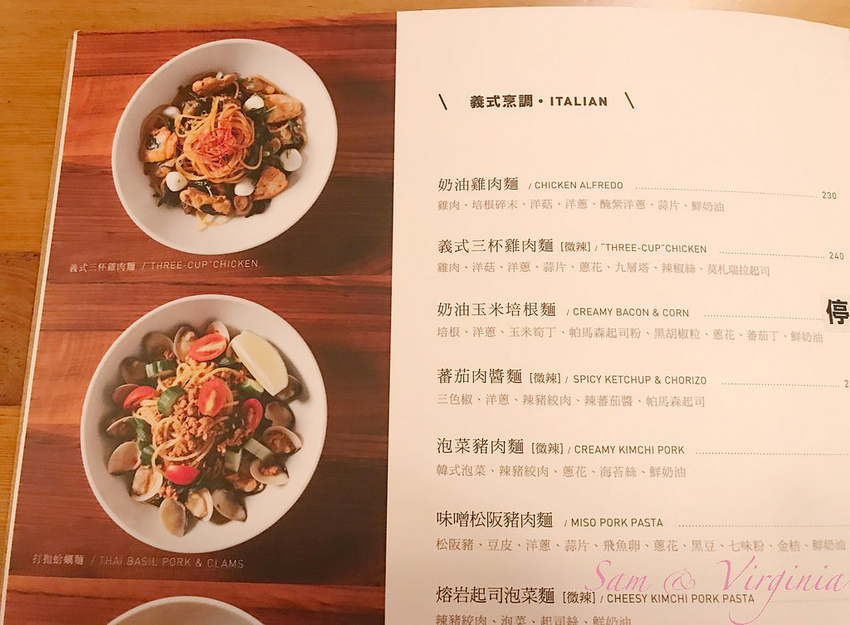 義式三杯雞肉麵 / "THREE-CUP" CHICKEN
打拋蛤蠣麵 / THAI BASIL PORK & CLAMS
\ 義式烹調・ITALIAN \
奶油雞肉麵 / CHICKEN ALFREDO 230
雞肉、培根碎末、洋菇、洋蔥、醃紫洋蔥、蒜片、鮮奶油
義式三杯雞肉麵 [微辣] / "THREE-CUP" CHICKEN 240
雞肉、洋菇、洋蔥、蒜片、蔥花、九層塔、辣椒絲、莫札瑞拉起司
奶油玉米培根麵 / CREAMY BACON & CORN 停
培根、洋蔥、玉米筍丁、帕馬森起司粉、黑胡椒粒、蔥花、蕃茄丁、鮮奶油
蕃茄肉醬麵 [微辣] / SPICY KETCHUP & CHORIZO 2
三色椒、洋蔥、辣豬絞肉、辣蕃茄醬、帕馬森起司
泡菜豬肉麵 [微辣] / CREAMY KIMCHI PORK
韓式泡菜、辣豬絞肉、蔥花、海苔絲、鮮奶油
味噌松阪豬肉麵 / MISO PORK PASTA
松阪豬、豆皮、洋蔥、蒜片、飛魚卵、蔥花、黑豆、七味粉、金桔、鮮奶油
熔岩起司泡菜麵 [微辣] / CHEESY KIMCHI PORK PASTA
辣豬絞肉、泡菜、起司絲、鮮奶油
Sam & Virginia